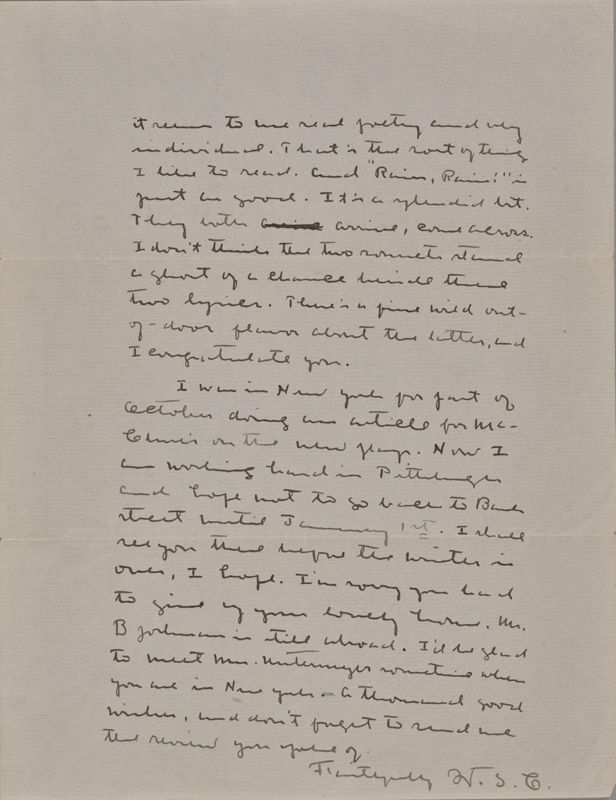 it seems to me real poetry and very
individual. That's the sort of thing
I like to read. And "Rain, Rain!" is
just as good. It's a splendid bit.
They both arrive, come across.
I don't think the two sonnets stand
a ghost of a chance beside these
two lyrics. There's a fine wild out-
of-door flavor about the latter, and
I congratulate you.
I was in New York for part of
October doing an article for Mc-
Clure's on the new plays. Now I
am working hard in Pittsburgh
and hope not to go back to Bank
street until January 1st. I shall
see you there before the winter is
over, I hope. I'm sorry you had
to give up your lovely home. Mr.
Bjorkman is still abroad. I'd be glad
to meet Mrs. Untermeyer sometime when
you are in New York. A thousand good
wishes, and don't forget to send me
the review you spoke of.
Faithfully W. S. C.